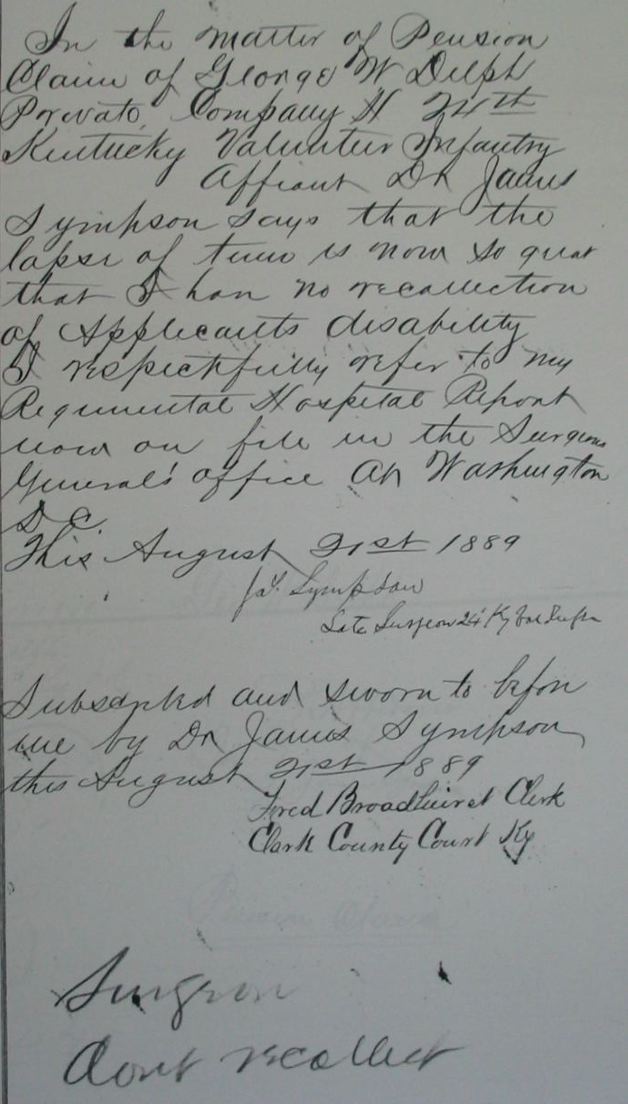 In the matter of Pension
Claim of George W Delph
Private Company H 24th
Kentucky Volunteer Infantry
Affiant Dr James
Sympson says that the
lapse of time is now so great
that I have no recollection
of Applicants disability
I respectfully refer to my
Regimental Hospital Report
now on file in the Surgeon
General's office At Washington
D.C.
This August 21st 1889
Jas. Sympson
Late Surgeon 24 Ky Vol Infn
Subscribed and sworn to before
me by Dr James Sympson
this August 21st 1889
Fred Broadhurst Clerk
Clark County Court Ky
Pension Claim
Surgeon
dont recollect